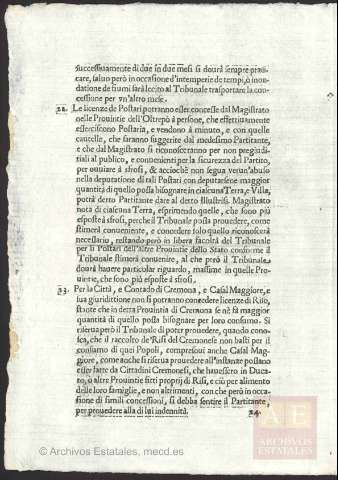 successiuamente di due in due mesi si dourà sempre prati-
care, saluo però in occasione d'intemperie de tempi, ò inon-
datione de fiumi sarà lecito al Tribunale trasportare la con-
cessione per vn'altro mese.
22. Le licenze de Postari potranno esser concesse dal Magistrato
nelle Prouintie dell'Oltrepò à persone, che effettiuamente
essercischino Postaria, e vendono à minuto, e con quelle
cautelle, che saranno suggerite dal medesimo Partitante,
e che dal Magistrato si riconosceranno per non pregiudi-
tiali al publico, e conuenienti per la sicurezza del Partito,
per ouuiare à sfrosi, & acciochè non segua verun'abuso
nella deputatione di tali Postari con deputarsene maggior
quantità di quello possa bisognare in ciascuna Terra, e Villa,
potrà detto Partitante dare al detto Illustriss. Magistrato
nota di ciascuna Terra, esprimendo quelle, che sono più
esposte à sfrosi, perche il Tribunale possa prouedere, come
stimerà conueniente, e concedere solo quello riconoscerà
necessario, restando però in libera facoltà del Tribunale
per li Postari dell'altre Prouintie dello Stato conforme il
Tribunale stimerà conuenire, al che però il Tribunale
dourà hauere particolar riguardo, massime in quelle Pro-
uintie, che sono più esposte à sfrosi.
23. Per la Città, e Contado di Cremona, e Casal Maggiore, e
sua giuridittione non si potranno concedere licenze di Riso,
stante che in detta Prouintia di Cremona se nè fà maggior
quantità di quello possa bisognare per loro consumo. Si
riserua però il Tribunale di poter prouedere, quando cono-
sca, che il raccolto de'Risi del Cremonese non basti per il
consumo di quei Popoli, compresoui anche Casal Mag-
giore, come anche si riserua prouedere all'instanze possano
esser fatte da Cittadini Cremonesi, che hauessero in Duca-
to, ò altre Prouintie siti proprij di Risi, e ciò per alimento
delle loro famiglie, e non altrimenti, con che però in occa-
sione di simili concessioni, si debba sentire il Partitante,
per prouedere alla di lui indennità.
24.
AE
ARCHIVOS
ESTATALES
© Archivos Estatales, mecd.es